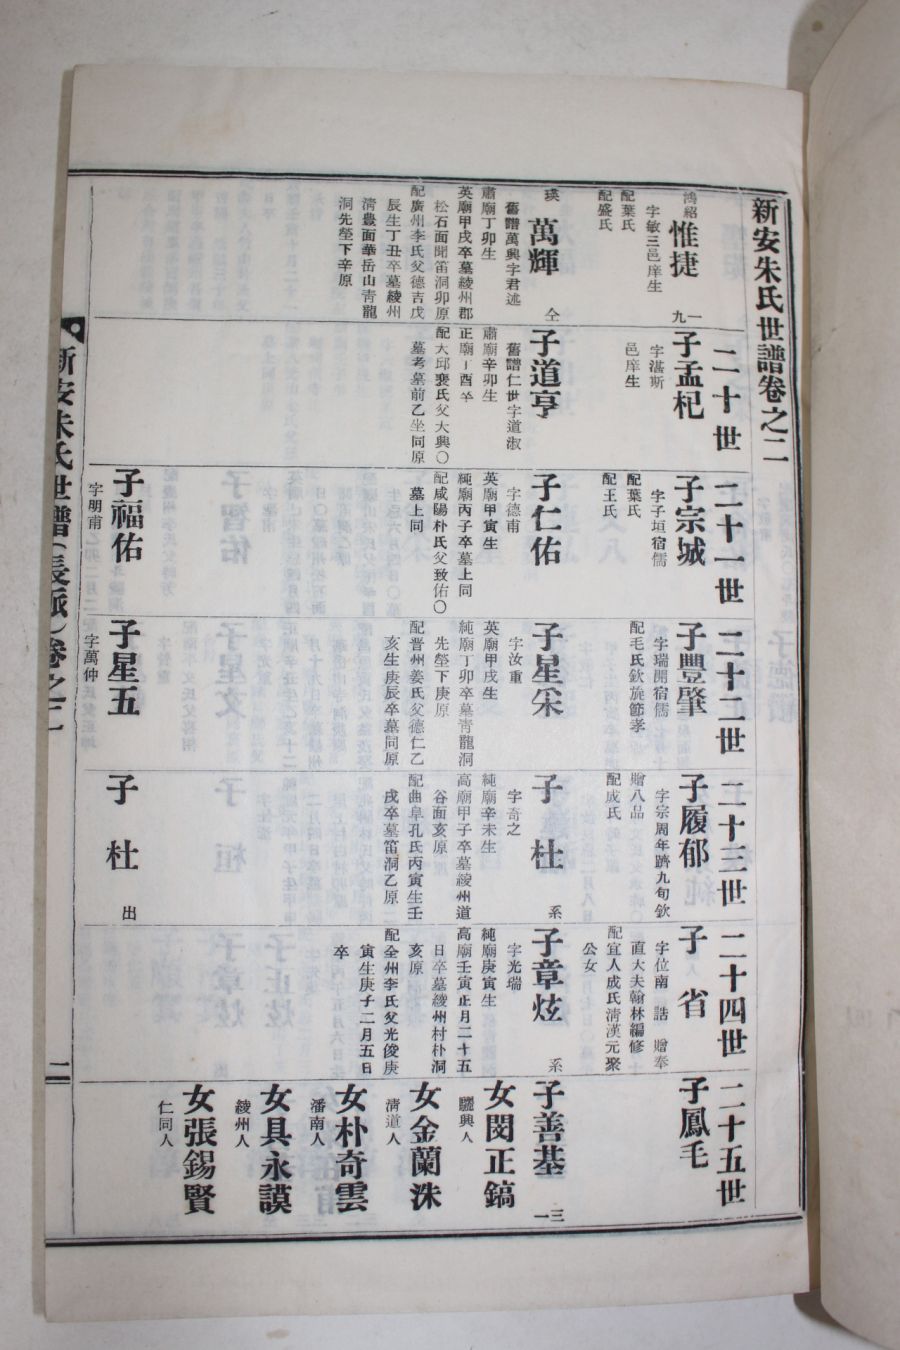 新安朱氏世譜卷之二
鴻紹
惟捷
一九
字敏三邑庠生
配葉氏
配盛氏
瑛
萬輝
仝
舊譜萬興字君述
肅廟丁卯生
英廟甲戌卒墓綾州郡
松石面開笛洞卯原
配廣州李氏父德吉戊
辰生丁丑卒墓綾州
清豊面華岳山靑龍
洞先塋下辛原
二十世
子孟杞
字湛斯
邑庠生
子道亨
舊譜仁世字道淑
肅廟辛卯生
正廟丁酉卒
配大邱裵氏父大興〇
墓考墓前乙坐同原
二十一世
子宗城
字子垣宿儒
配葉氏
配王氏
子仁佑
字德甫
英廟甲寅生
純廟丙子卒墓上同
配咸陽朴氏父致佑〇
墓上同
子福佑
字明甫
二十二世
子豐肇
字瑞開宿儒
配毛氏欽旌節孝
子星采
字汝重
英廟甲戌生
純廟丁卯卒墓靑龍洞
先塋下庚原
配晋州姜氏父德仁乙
亥生庚辰卒墓同原
子星五
字萬仲
二十三世
子履郁
字宗周年躋九旬欽
贈八品
配成氏
子杜
系
字奇之
純廟辛未生
高廟甲子卒墓綾州道
谷面亥原
配曲阜孔氏丙寅生壬
戌卒墓笛洞乙原
子杜
出
二十四世
子省
字位南 誥 贈奉
直大夫翰林編修
配宜人成氏清漢元聚
公女
子章炫
系
字光瑞
純廟庚寅生
高廟壬寅正月二十五
日卒墓綾州村朴洞
亥原
配全州李氏父光俊庚
寅生庚子二月五日
卒
二十五世
子鳳毛
子善基
一三
女閔正鎬
驪興人
女金蘭洙
清道人
女朴奇雲
潘南人
女具永謨
綾州人
女張錫賢
仁同人
新安朱氏世譜(長派)卷之二
二